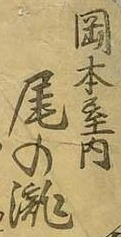 岡本屋内
尾の瀧